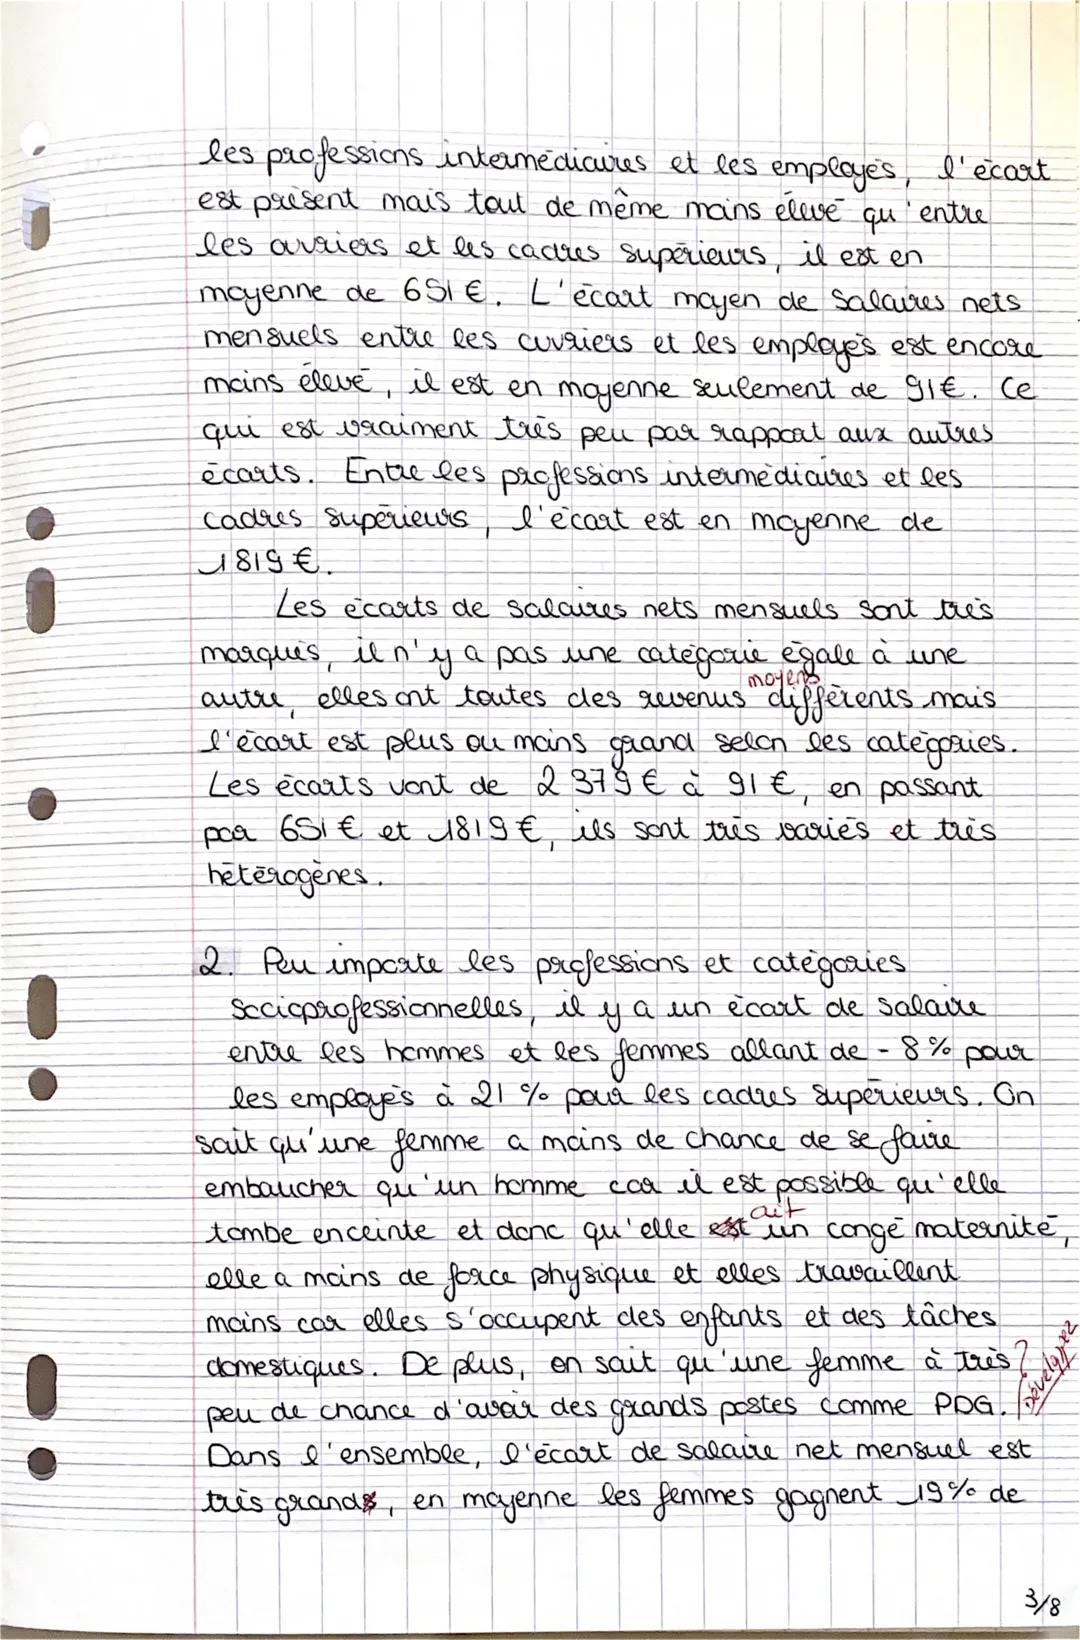 les professions intermédiaires et les employés, l'écart
est présent mais tout de même moins élevé qu'entre
les ouvriers et les cadres supérieurs, il est en
moyenne de 651 €. L'écart moyen de salaires nets
mensuels entre les ouvriers et les employés est encore
moins élevé, il est en moyenne seulement de 91 €. Ce
qui est vraiment très peu par rapport aux autres
écarts. Entre les professions intermédiaires et les
cadres supérieurs, l'écart est en moyenne de
1819 €.
Les écarts de salaires nets mensuels sont très
marqués, il n'y a pas une catégorie égale à une
moyens
autre, elles ont toutes des revenus différents mais
l'écart est plus ou moins grand selon les catégories.
Les écarts vont de 2 379 € à 91 €, en passant
par 651 € et 1819 €, ils sont très variés et très
hétérogènes.
2. Peu importe les professions et catégories
socioprofessionnelles, il y a un écart de salaire
entre les hommes et les femmes allant de - 8 % pour
les employés à 21 % pour les cadres supérieurs. On
sait qu'une femme a moins de chance de se faire
embaucher qu'un homme car il est possible qu'elle
ait
tombe enceinte et donc qu'elle est un congé maternité,
elle a moins de force physique et elles travaillent
moins car elles s'occupent des enfants et des tâches
domestiques. De plus, on sait qu'une femme à très ?
Développez
peu de chance d'avoir des grands postes comme PDG.
Dans l'ensemble, l'écart de salaire net mensuel est
très grands, en moyenne les femmes gagnent 19 % de
3/8